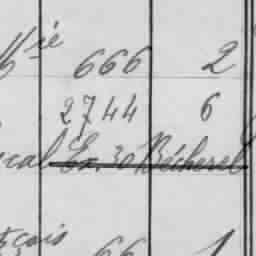 666 2
2744 6
cal Ex. 30 Bécherel
çais 66 1